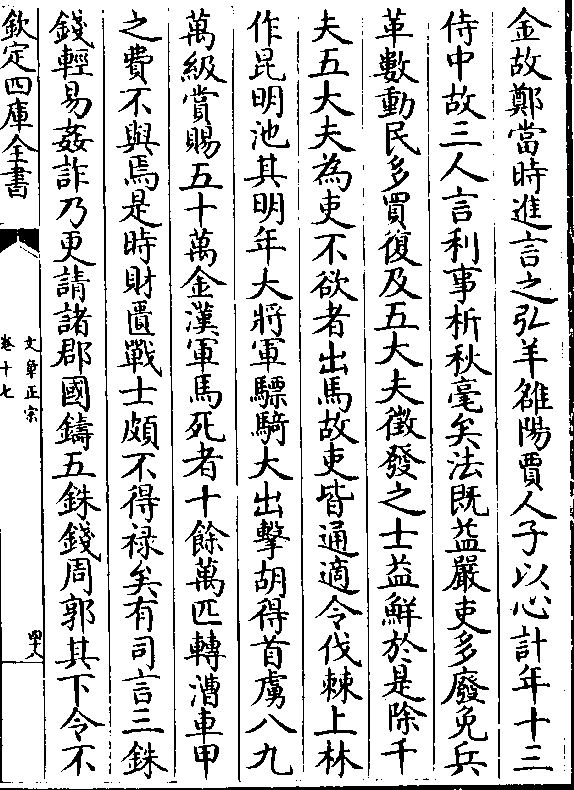 金故鄭當時進言之弘羊雒陽賈人子以心計年十三
侍中故三人言利事析秋毫矣法既益嚴吏多廢免兵
革數動民多買復及五大夫徵發之士益鮮於是除千
夫五大夫為吏不欲者出馬故吏皆通適令伐棘上林
作昆明池其明年大將軍驃騎大出擊胡得首虜八九
萬級賞賜五十萬金漢軍馬死者十餘萬匹轉漕車甲
之費不與焉是時財匱戰士頗不得禄矣有司言三銖
錢輕易姦詐乃更請諸郡國鑄五銖錢周郭其下令不
欽定四庫全書
文章正宗
卷十七